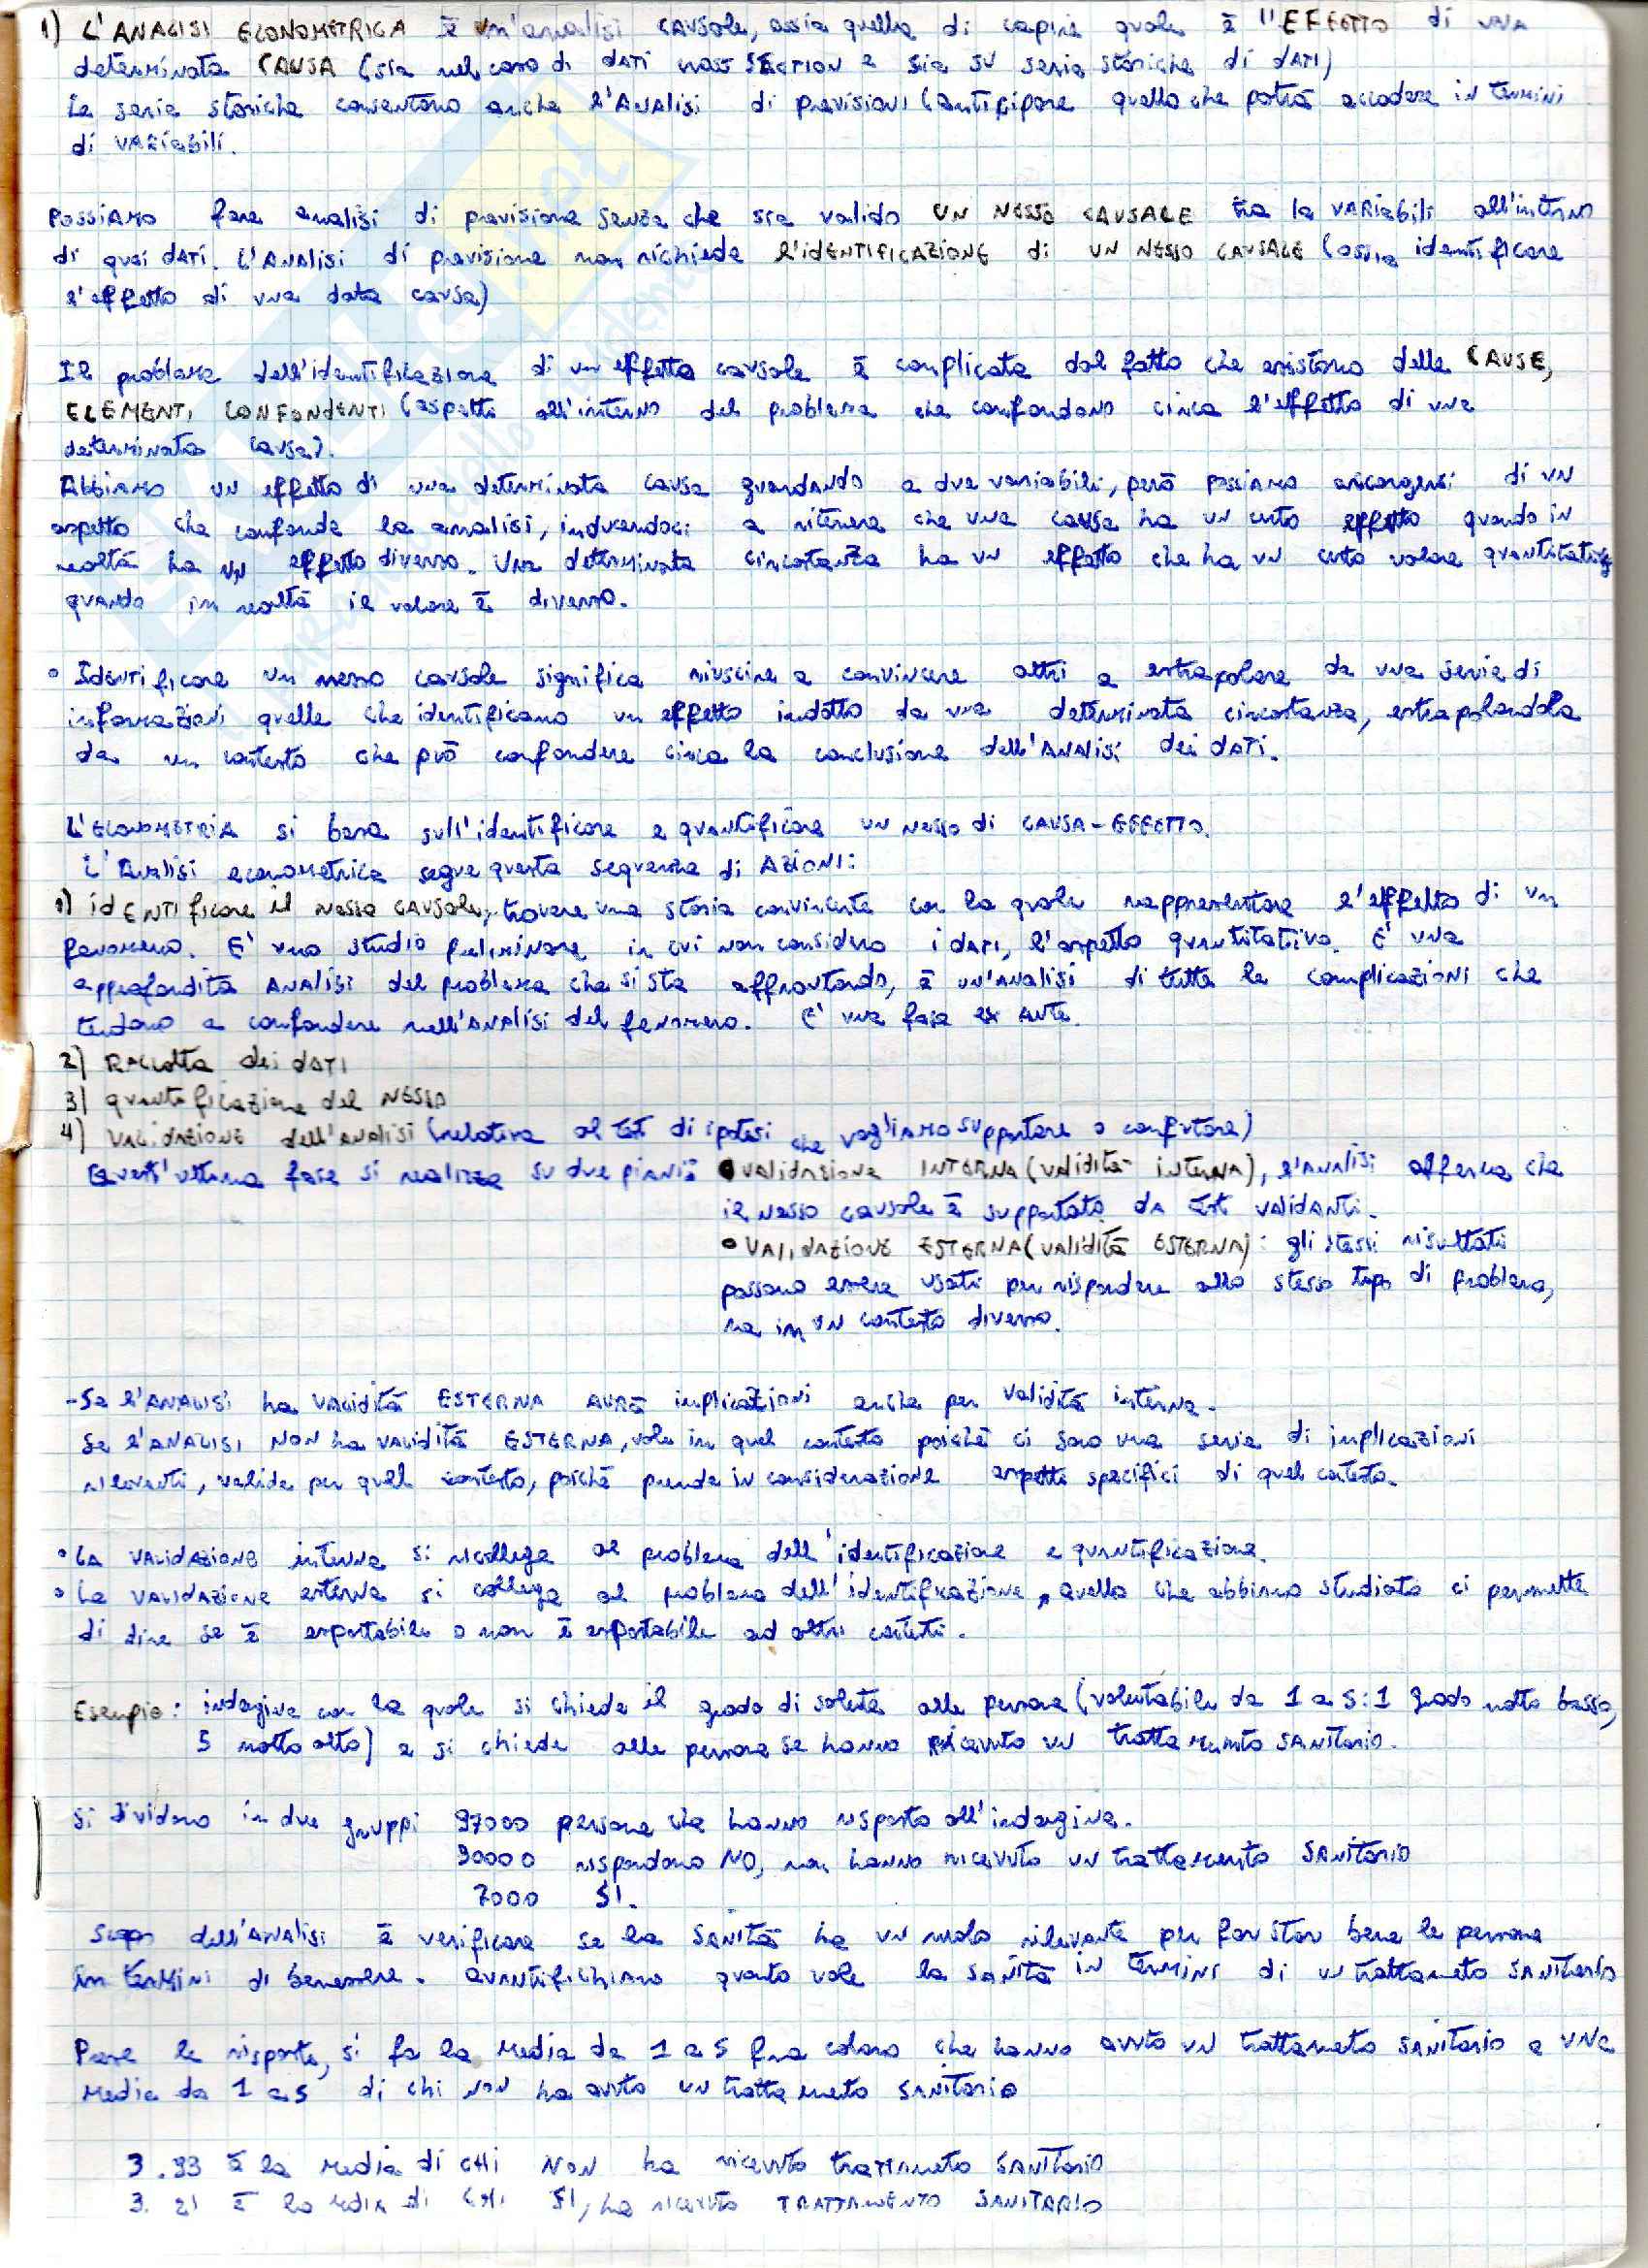 1) L'ANALISI ECONOMETRICA è un'analisi CAUSale, ossia quella di capire quale è l'EFFETTO di UNA
determinata CAUSA (sia nel caso di DATI cross SECTION e sia su serie storiche di DATI)
Le serie storiche consentono anche l'ANALisi di previsioni (anticipare quello che potrà accadere in termini
di VARiabili.
POSSIAMO fare analisi di previsione senza che sia valido UN NESSO CAUSALE tra le VARiabili all'interno
di quei DATI. L'ANALisi di previsione non richiede l'iDENTIFICAZIONE di UN NESSO CAUSALE (ossia identificare
l'effetto di una data causa)
Il problema dell'identificazione di un effetto causale è complicata dal fatto che esistono delle CAUSE,
ELEMENTI CONFONDENTI (aspetti all'interno del problema che confondono circa l'effetto di una
determinata causa).
Abbiamo un effetto di una determinata causa guardando a due variabili, però possiamo accorgerci di UN
aspetto che confonde la analisi, inducendoci a ritenere che una causa ha un certo effetto quando in
realtà ha un effetto diverso. Una determinata circostanza ha un effetto che ha un certo valore quantitativo
quando in realtà il valore è diverso.
• Identificare un nesso causale significa riuscire a convincere altri a estrapolare da una serie di
informazioni quelle che identificano un effetto indotto da una determinata circostanza, estrapolandola
da un contesto che può confondere circa la conclusione dell'ANALisi dei DATI.
L'ECONOMETRIA si basa sull'identificare e quantificare un nesso di CAUSA-EFFETTO.
L'Analisi econometrica segue questa sequenza di AZIONI:
1) idENTIficare il nesso CAUSale, trovare una storia convincente con la quale rappresentare l'effetto di un
fenomeno. E' uno studio preliminare in cui non considero i DATI, l'aspetto quantitativo. E' una
approfondita ANALisi del problema che si sta affrontando, è un'ANALisi di tutte le complicazioni che
tendono a confondere nell'ANALisi del fenomeno. E' una fase ex ante.
2) RACCOLTA dei DATI
3) quantificazione del NESSO
4) VALIDAZIONE dell'ANALisi (relativa al test di ipotesi che vogliamo supportare o confutare)
Quest'ultima fase si realizza su due piani: • VALIDAZIONE INTERNA (VALidità interna), l'ANALisi afferma che
il nesso causale è supportato da test VALIDANTi.
• VALIDAZIONE ESTERNA (VALidità ESTERNA): gli stessi risultati
possono essere usati per rispondere allo stesso tipo di problema,
ma in un contesto diverso.
- Se l'ANALISI ha VALIDità ESTERNA AVRà implicazioni anche per validità interna.
Se l'ANALISI NON ha VALIDità ESTERNA, vale in quel contesto poichè ci sono una serie di implicazioni
rilevanti, valide per quel contesto, poichè prende in considerazione aspetti specifici di quel contesto.
• LA VALIDAZIONE interna si ricollega al problema dell'identificazione e quantificazione.
• La VALIDAZIONE esterna si collega al problema dell'identificazione, quello che abbiamo studiato ci permette
di dire se è esportabile o non è esportabile ad altri contesti.
Esempio: indagine con la quale si chiede il grado di salute alle persone (valutabile da 1 a 5: 1 grado molto basso,
5 molto alto) e si chiede alle persone se hanno ricevuto un trattamento SANITario.
Si dividono in due gruppi 97000 persone che hanno risposto all'indagine.
90000 rispondono NO, non hanno ricevuto un trattamento SANITARIO
7000 SI.
Scopo dell'ANALisi è verificare se la SANità ha un ruolo rilevante per far star bene le persone
in termini di benessere. QUANTIFICHIAMO quanto vale la SANità in termini di un trattameto SANITario
Prese le risposte, si fa la media da 1 a 5 fra coloro che hanno avuto un trattameto SANITario e una
media da 1 a 5 di chi NON ha avuto un trattamento SANITario
3.93 è la media di CHi NON ha ricevuto trattameto SANITario
3.21 è la media di CHi SI, ha ricevuto TRATTAMENTO SANITARIO